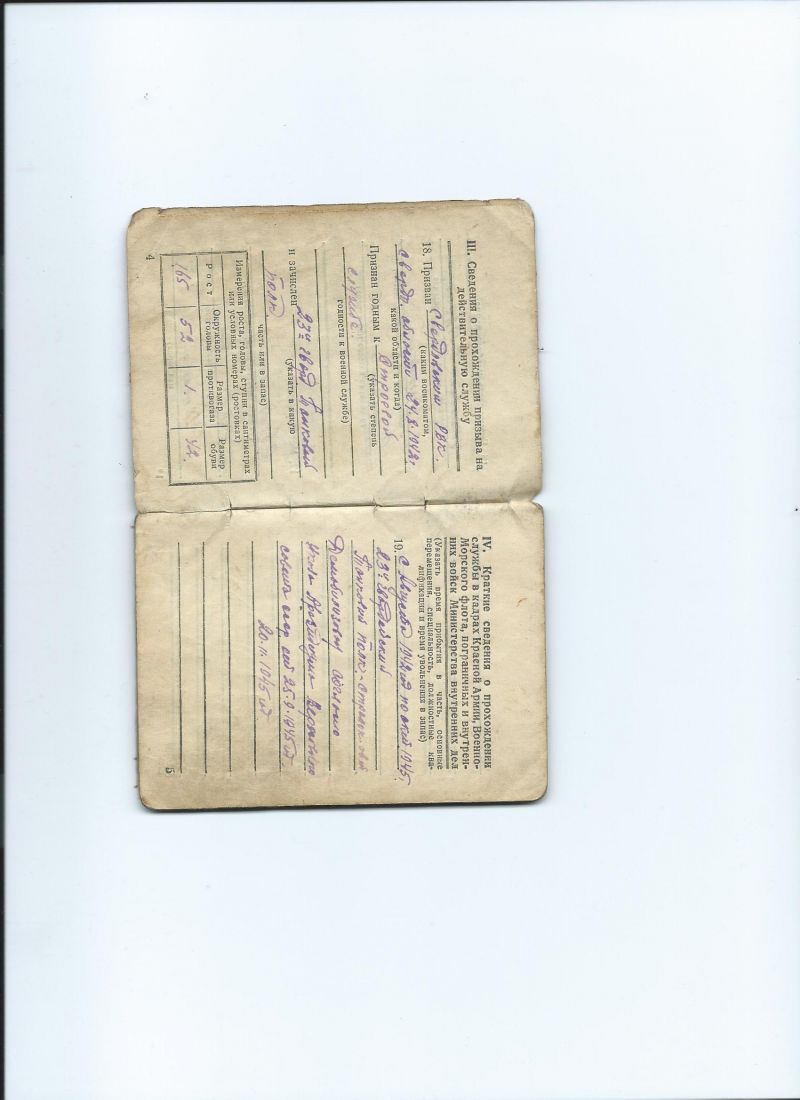 III. Сведения о прохождении призыва на
действительную службу
18. Призван Свердловским РВК.
(каким военкоматом,
свердл. области 24.8.1942г
какой области и когда)
Призван годным к строевой
(указать степень
службе.
годности к военной службе)
и зачислен 23й Гвард Танковый
(указать в какую
полк
часть или в запас)
Измерения роста, головы, ступни в сантиметрах
или условных номерах (ростовках)
Рост Окружность головы Размер противогаза Размер обуви
165 52 1. 42.
4
IV. Краткие сведения о прохождении
службы в кадрах Красной Армии, Военно-
Морского флота, пограничных и внутрен-
них войск Министерства внутренних дел
(Указать время прибытия в часть, основные
перемещения, специальность, должностные ква-
лификации и время увольнения в запас)
19. С Августа 1942 год по 1945г.
23й Гвардейский
Танковый полк -
Демобилизован
указа Президиума Верховного
совета ссср от 25.9.1945 год
20.11.1945 год
5